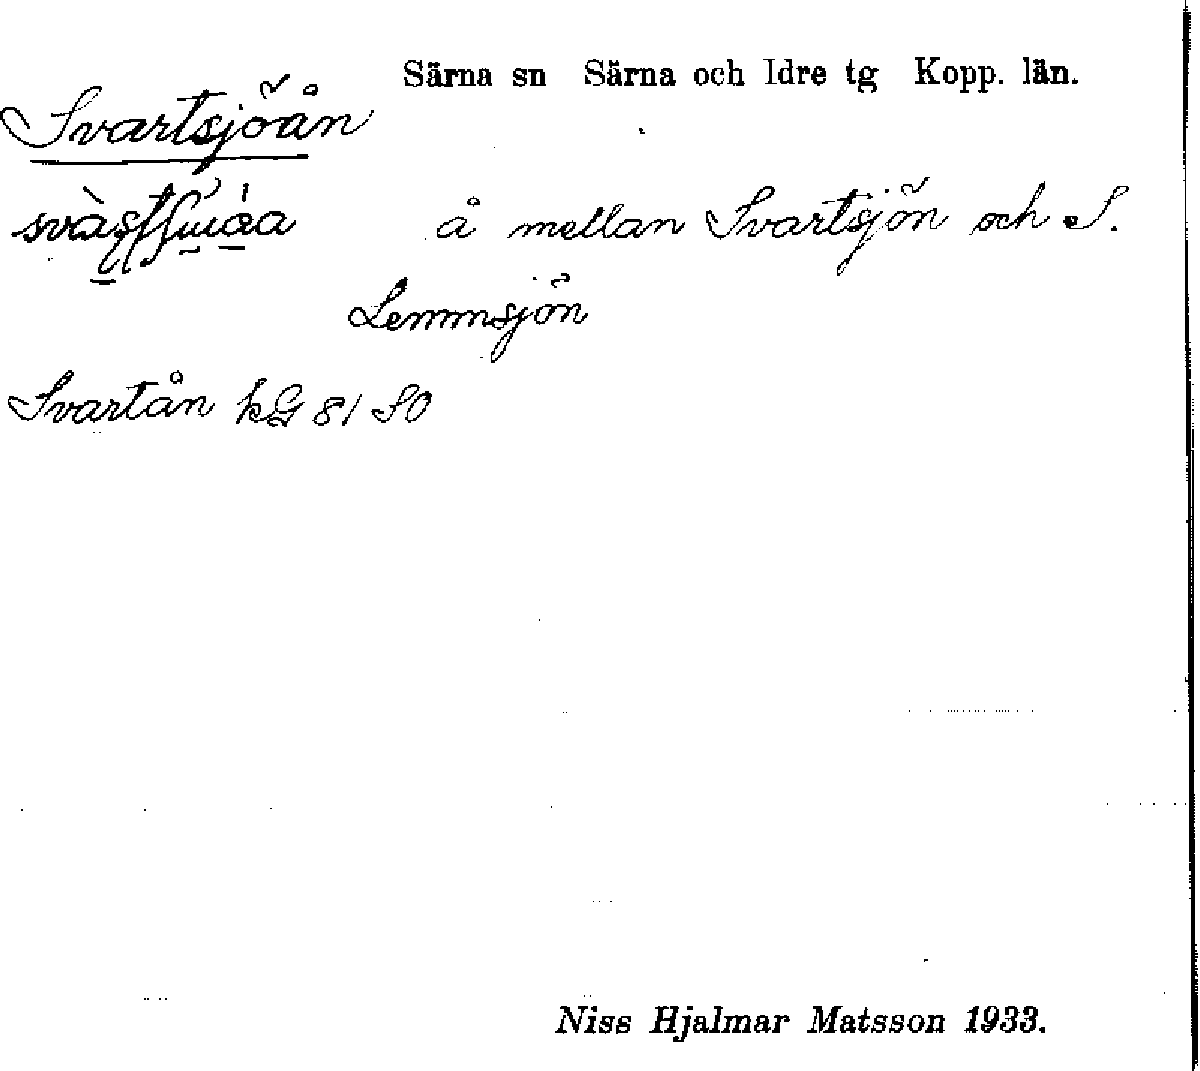 Särna sn Särna och Idre tg Kopp. län.
Svartsjöån
å mellan Svartsjön och S.
Lemmsjön
Svartån kG 81 SO
Niss Hjalmar Matsson 1933.